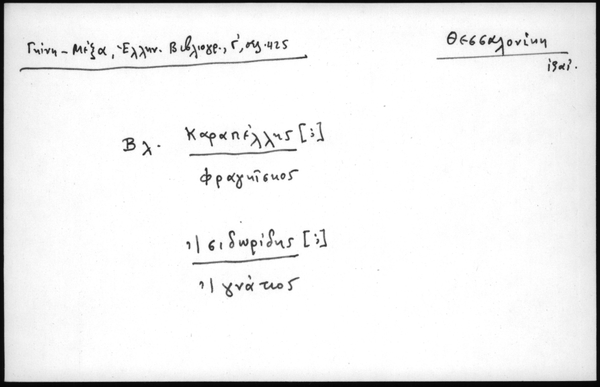 Γκίνη - Μέξα, Ἑλλην. Βιβλιογρ., Γ', σελ. 425
Θεσσαλονίκη
Βλ. Καραπέλλης [;]
Φραγκῖσκος
Ἰσιδωρίδης [;]
Ἰγνάτιος